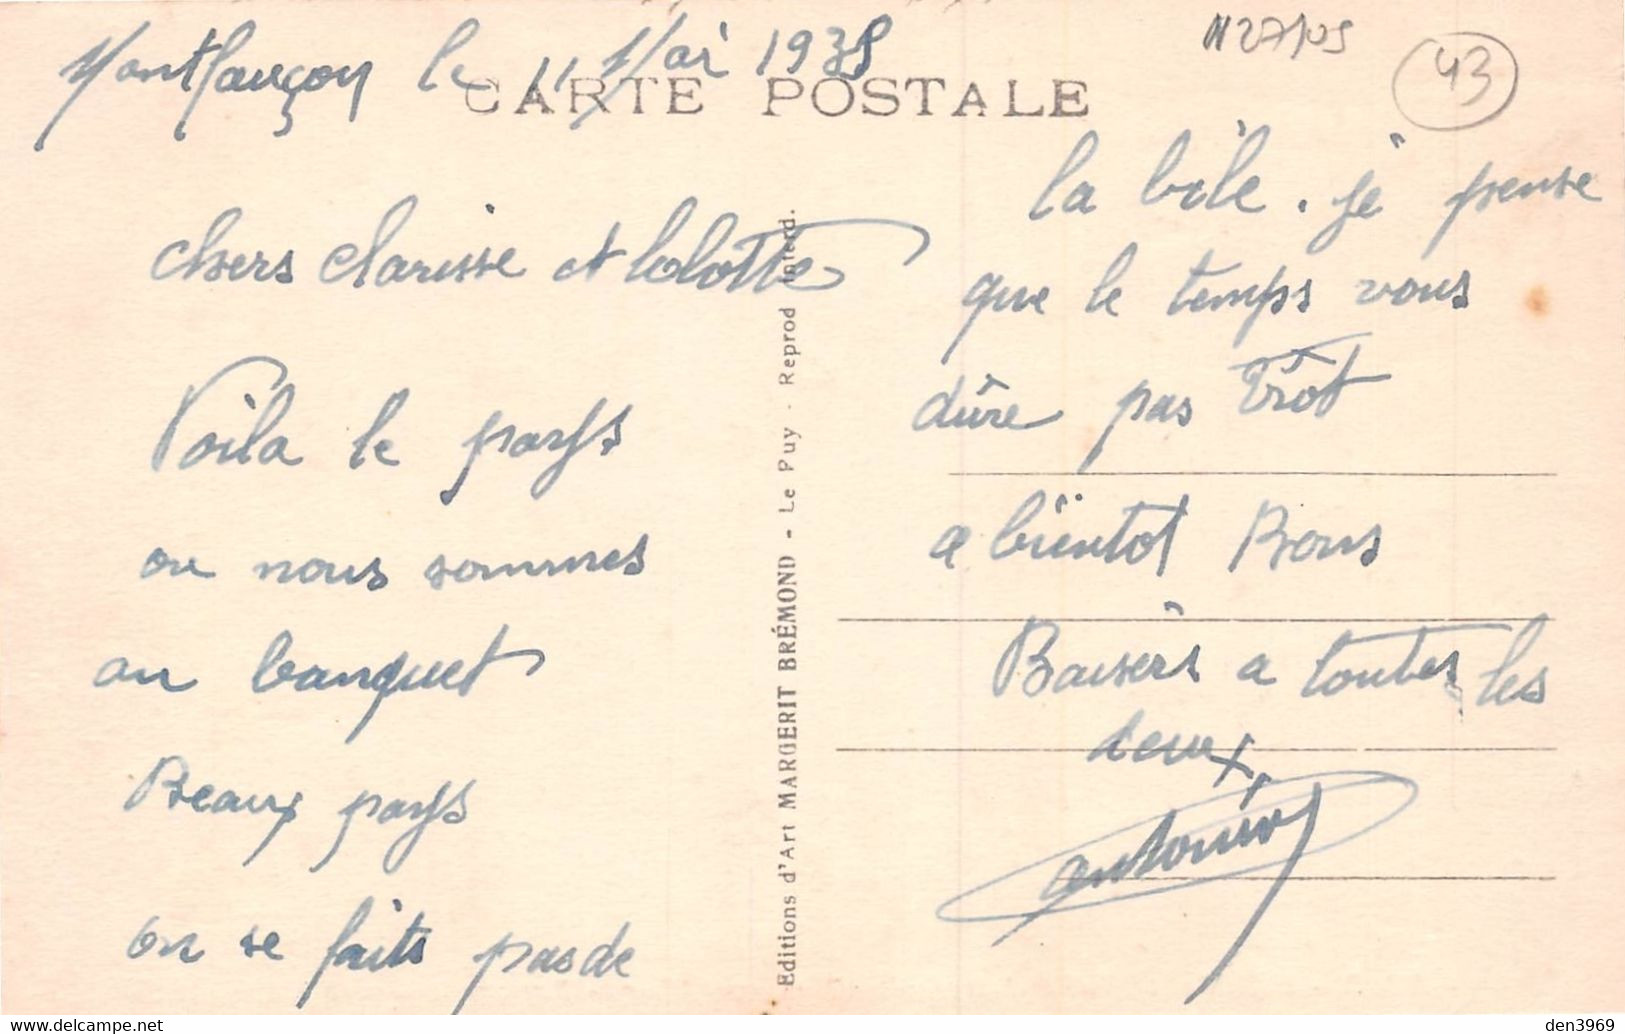 Montfauçon le 11 Mai 1938
N27/05
43
CARTE POSTALE
chers clarisse et lolotte
Voila le pays
ou nous sommes
au banquet
Beaux pays
on se faits pas de
Editions d'Art MARGERIT BRÉMOND - Le Puy - Reprod Interd.
la bile. je pense
que le temps vous
dûre pas Trôt
a bientot Bons
Baisers a toutes les
deux,
den3969